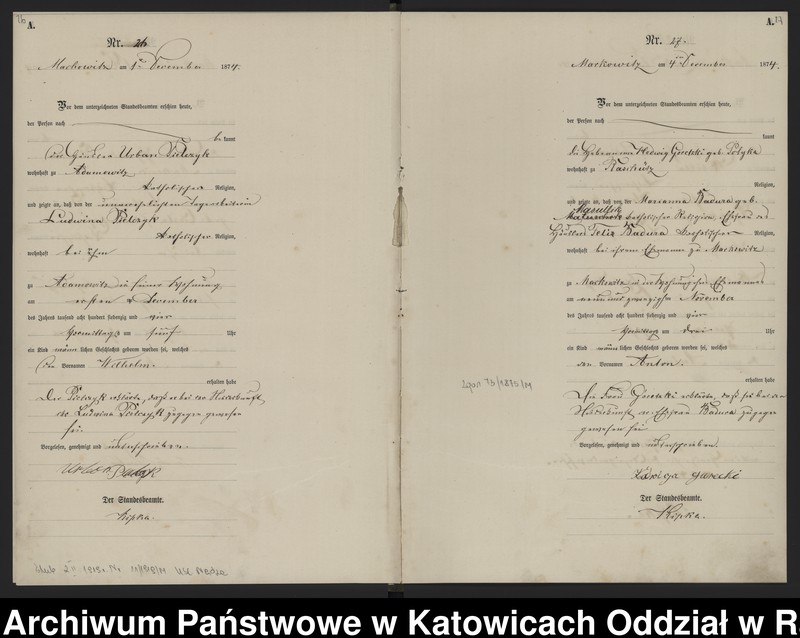 26
A.
Nr. 26
Markowitz am 1ten December 1874.
Vor dem unterzeichneten Standesbeamten erschien heute,
der Person nach
be kannt
der Häusler Urban
wohnhaft zu Adamowitz
katholischer Religion,
und zeigte an, daß von der unverehelichten Tagearbeiterin
Ludwina
katholischer Religion,
wohnhaft bei ihm
zu Adamowitz in seiner Wohnung
am ersten December
des Jahres tausend acht hundert siebenzig und vier
Vormittags um fünf Uhr
ein Kind männlichen Geschlechts geboren worden sei, welches
den Vornamen Wilhelm
erhalten habe
Der erklärte, daß er bei der Niederkunft
der Ludwina zugegen gewesen
sei
Vorgelesen, genehmigt und unterschrieben.
Urban
Der Standesbeamte.
Kopka.
ślub 1915 r. Nr.
A.
27
Nr. 27.
Markowitz am 4ten December 1874.
Vor dem unterzeichneten Standesbeamten erschien heute,
der Person nach
kannt
die Hebeamme Hedwig Goretzki geb.
wohnhaft zu
Religion,
und zeigte an, daß von der Marianna Badura geb.
katholischer Religion, Ehefrau des
Häuslers Felix Badura katholischer Religion,
wohnhaft bei ihrem Ehemanne zu Markowitz
zu Markowitz in der Wohnung ihres Ehemannes
am neun und zwanzigsten November
des Jahres tausend acht hundert siebenzig und vier
Vormittags um drei Uhr
ein Kind männlichen Geschlechts geboren worden sei, welches
den Vornamen Anton.
erhalten habe
Die Frau Goretzki erklärte, daß sie bei der
Niederkunft der Ehefrau Badura zugegen
gewesen sei
Vorgelesen, genehmigt und unterschrieben.
Der Standesbeamte.
Kopka.
Zgon 73/1875/M
Archiwum Państwowe w Katowicach Oddział w R